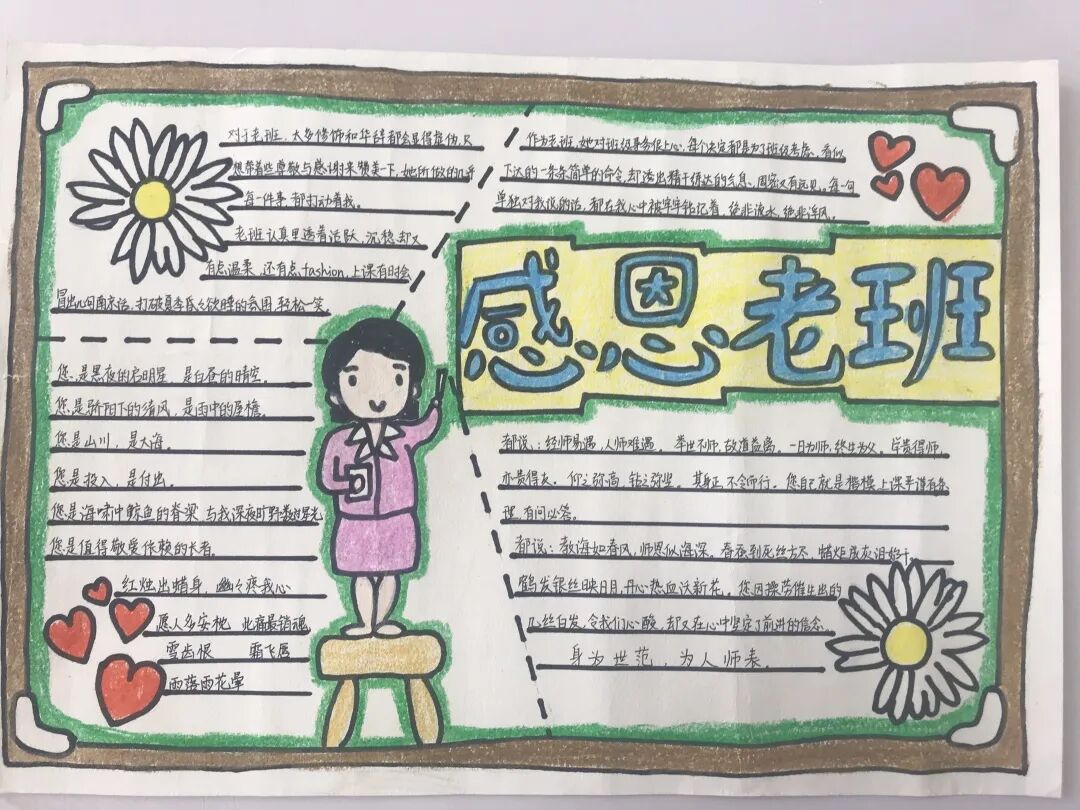 对于老班，太多修饰和华辞都会显得虚伪，只
想带着些尊敬与感谢来赞美一下，她所做的几乎
每一件事，都打动着我。
老班认真里透着活跃，沉稳却又
有点温柔，还有点fashion，上课有时会
冒出几句南京话，打破夏季昏昏欲睡的氛围，轻松一笑。
作为老班，她对班级事务很上心，每个决定都是为了班级考虑。看似
下达的一条条简单的命令，却透出精干练达的气息，周密又有远见。每一句
单独对我说的话，都在我心中被牢牢铭记着，绝非流水，绝非浮风。
感恩老班
您是黑夜的启明星，是白昼的晴空。
您是骄阳下的清风，是雨中的屋檐。
您是山川，是大海。
您是投入，是付出。
您是海啸中鲸鱼的脊梁，与我深夜旷野数星光
您是值得敬爱依赖的长者。
红烛出蜡身，幽々疼我心
愿人多安祂 此病最销魂
雪齿恨 霜飞唇
雨落雨花晕
都说：经师易遇，人师难遇。举世不师，故道益离。一日为师，终生为父，学贵得师，
亦贵得友。仰之弥高，钻之弥坚。其身正，不令而行。您自己就是楷模，上课平谨有条
理，有问必答。
都说：教海如春风，师恩似海深。春蚕到死丝方尽，蜡炬成灰泪始干
鹤发银丝映日月，丹心热血沃新花。您因操劳催生出的
几丝白发，令我们心酸，却又在心中坚定了前进的信念。
身为世范，为人师表。